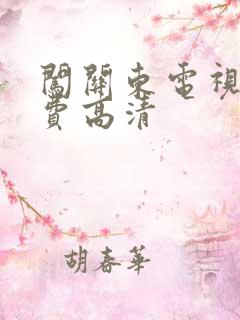 闖關東電視
費高清
胡春華